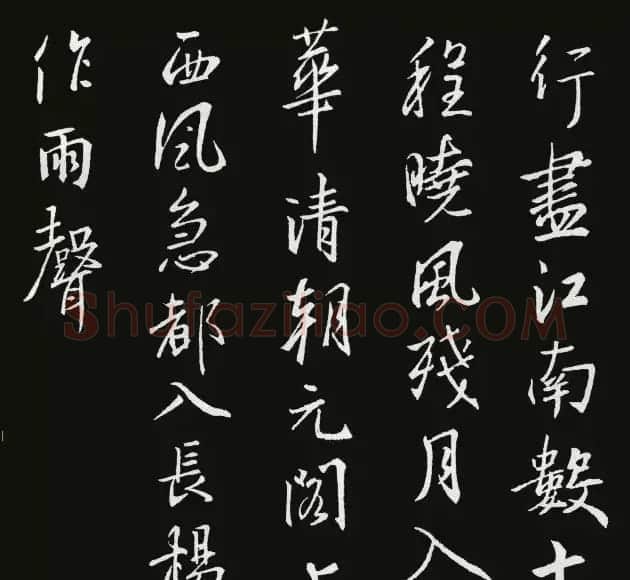 行盡江南數十
程曉風殘月入
華清朝元閣上
西風急都入長楊
作雨聲
Shufaziliao.COM